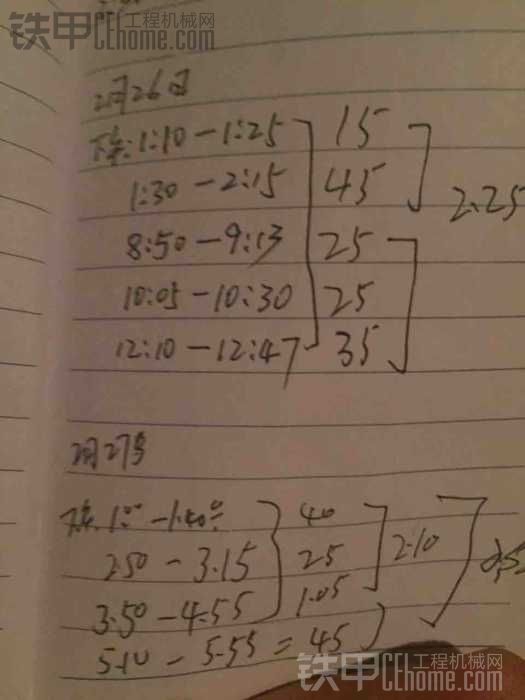 铁甲 工程机械网
CEhome.com
2月26日
下午:1:10-1:25 15
1:30-2:15 45
2.25
8:50-9:13 25
10:05-10:30 25
12:10-12:47 35
2月27号
1:00-1:40 40
2.50-3.15 25 2.10
3.50-4.55 1.05
5.10-5.55=45
铁甲 工程机械网
CEhome.com